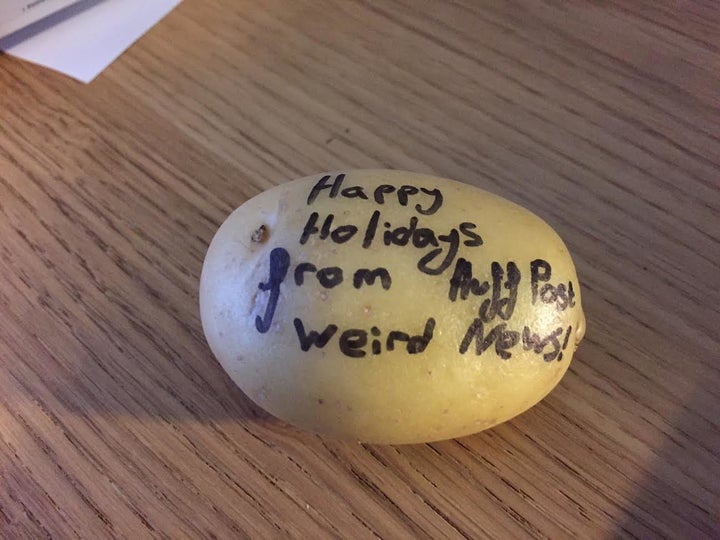 Happy
Holidays
from Huff Post
Weird News!